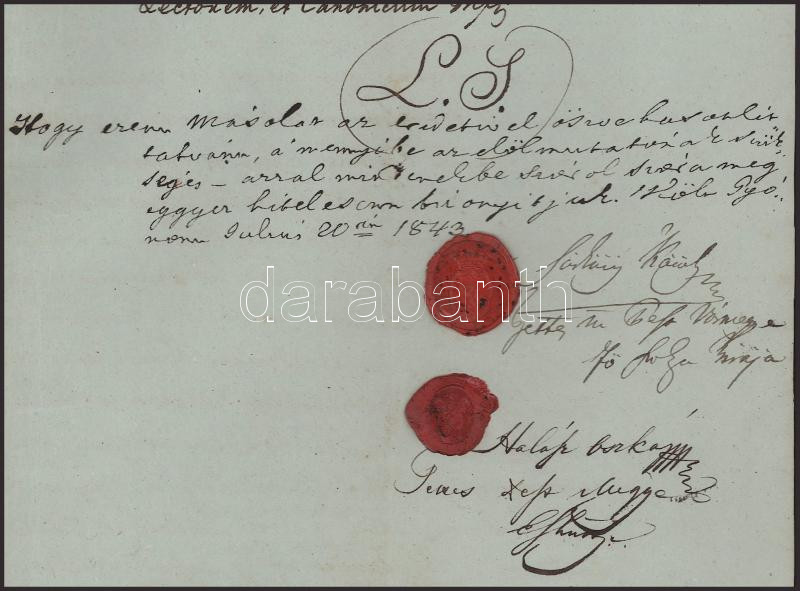 Lectorem, et Canonicum mp
L. S.
Hogy ezenn Másolat az eredetivel öszve hasonlít
tatván, a mennyibe az előlmutatván a szük-
séges – azzal mindenekbe szóról szóra meg
eggyez hitelesenn bizonyítjuk. Költ Gyö-
nönn Julius 20 án 1843
Károly
Pest Vármegye
Fő Szolga Birája
Halász Oszkár
Pest Megye
darabanth